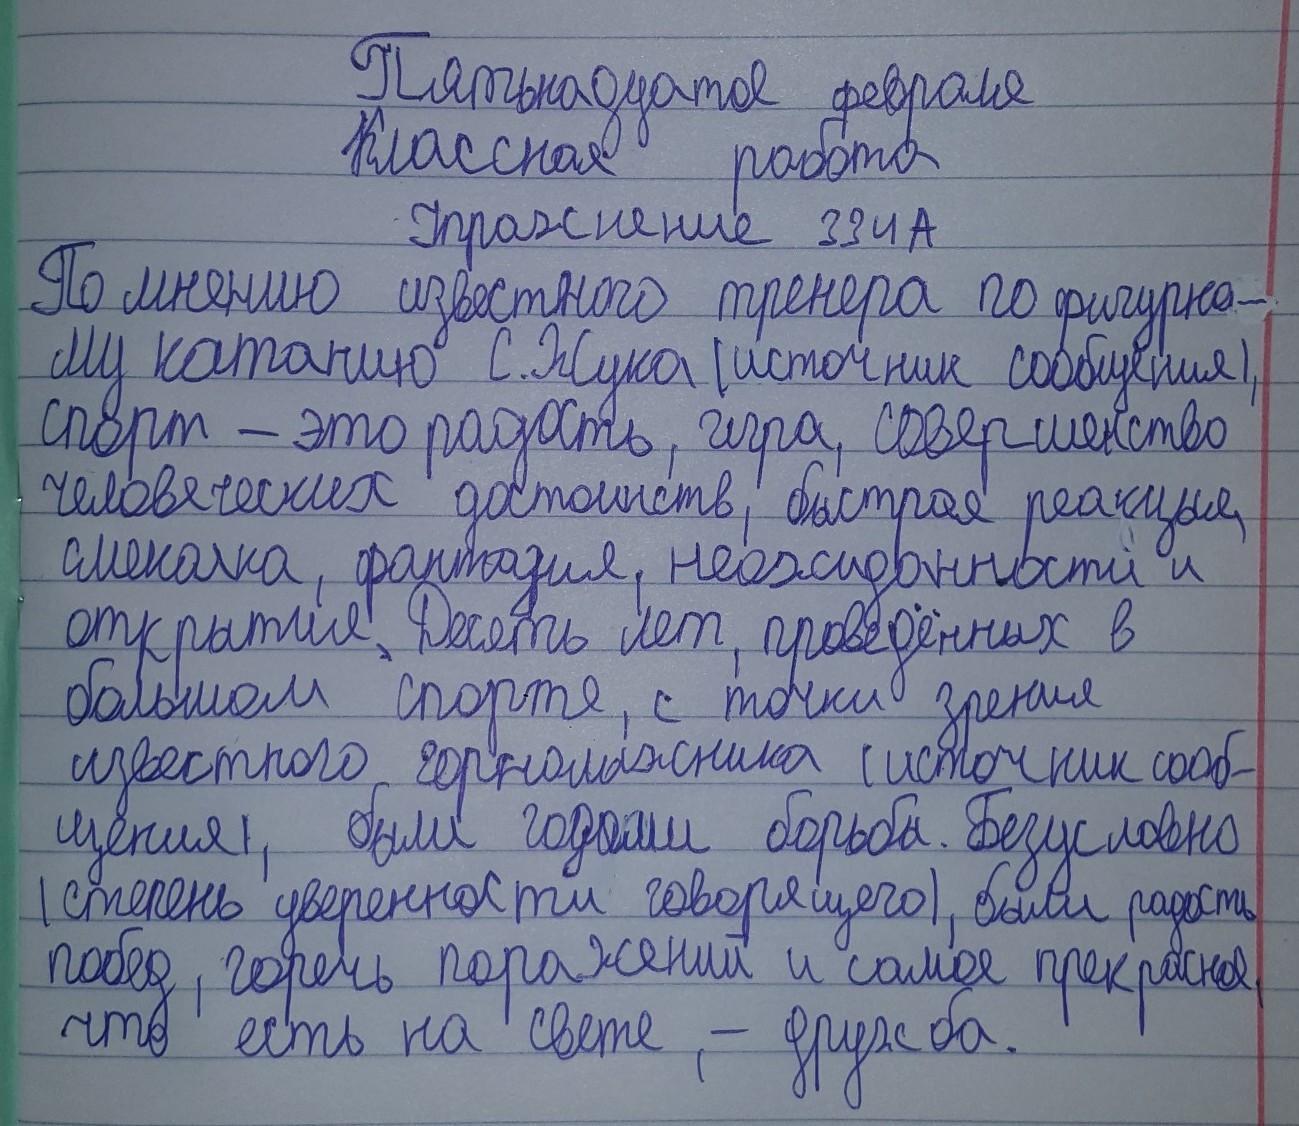 Пятьнадцатое февраля
Классная работа
Упражнение 334А
По мнению известного тренера по фигурно-
му катанию С.Жука (источник сообщения),
спорт – это радость, игра, совершенство
человеческих достоинств, быстрая реакция,
смекалка, фантазия, неожиданности и
открытия. Десять лет, проведённых в
большом спорте, с точки зрения
известного горнолыжника (источник сооб-
щения), были годами борьбы. Безусловно
(степень уверенности говорящего), были радость
побед, горечь поражений и самое прекрасное,
что есть на свете, – дружба.